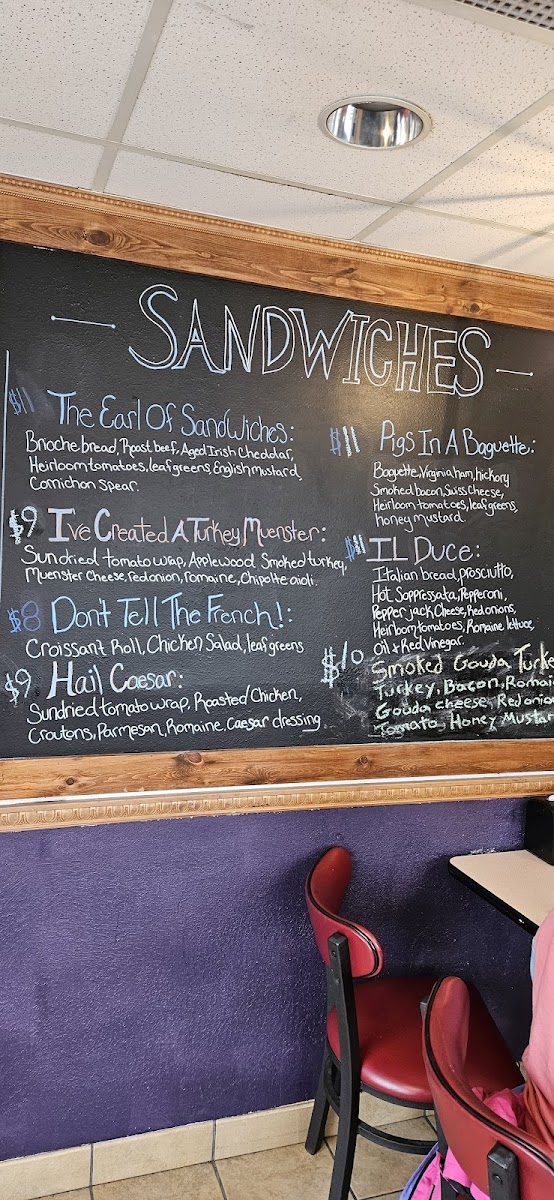 SANDWICHES
$11 The Earl Of Sandwiches:
Brioche bread, Roast beef, Aged Irish Cheddar,
Heirloom tomatoes, leaf greens, English mustard,
Cornichon spear.
$9 I've Created A Turkey Muenster:
Sundried tomato wrap, Applewood Smoked turkey,
Muenster Cheese, red onion, romaine, Chipotle aioli.
$8 Don't Tell The French!:
Croissant Roll, Chicken Salad, leaf greens
$9 Hail Caesar:
Sundried tomato wrap, Roasted Chicken,
Croutons, Parmesan, Romaine, Caesar dressing
$11 Pigs In A Baguette:
Baguette, Virginia ham, hickory
Smoked bacon, Swiss Cheese,
Heirloom tomatoes, leaf greens,
honey mustard.
$11 IL Duce:
Italian bread, prosciutto,
Hot Sopressata, Pepperoni,
Pepper jack Cheese, Red onions,
Heirloom tomatoes, Romaine lettuce,
Oil & Red Vinegar.
$10 Smoked Gouda Turke
Turkey, Bacon, Romai
Gouda cheese, Red onio
Tomato, Honey Mustar